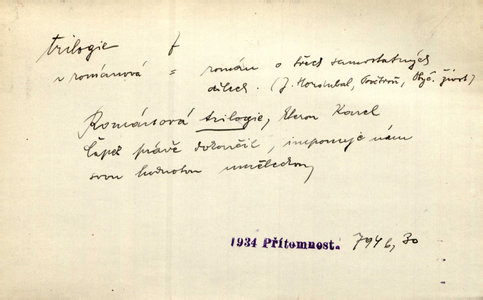 trilogie f
románová = román o třech samostatných
dílech. (J. Hordubal, Povětroň, Obyč. život)
Románová trilogie, kterou Karel
Čapek právě dokončil, imponuje nám
svou hodnotou uměleckou
1934 Přítomnost. 794b, 30